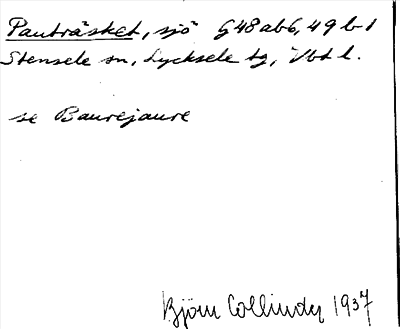 Pauträsket, sjö G48ab6, 49 b 1
Stensele sn, Lycksele tg, Vbt l.
se Baurejaure
Björn Collinder 1937